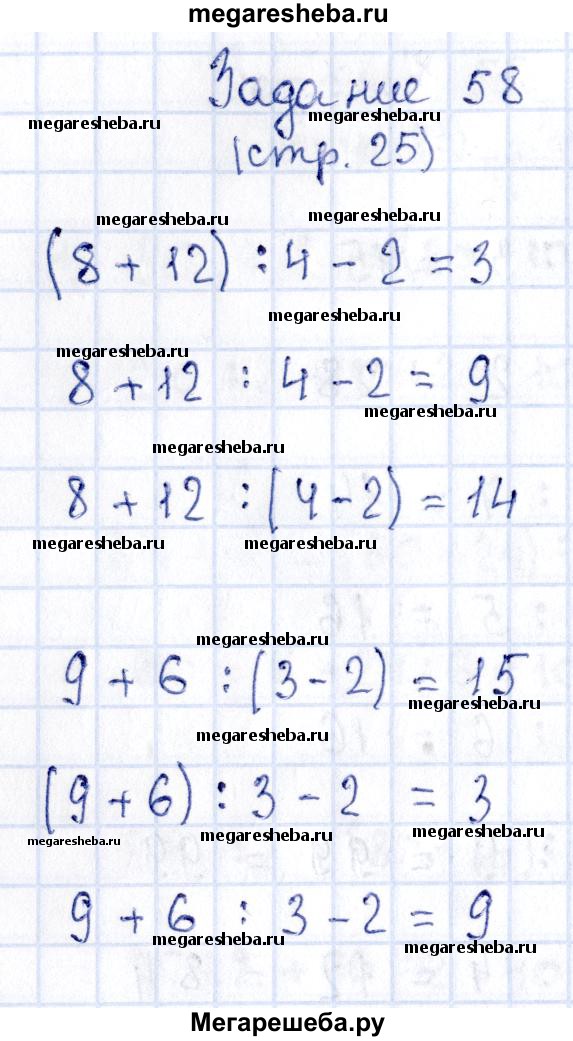 megaresheba.ru
Задание 58
megaresheba.ru megaresheba.ru
(стр. 25)
megaresheba.ru megaresheba.ru
(8 + 12) : 4 - 2 = 3
megaresheba.ru
megaresheba.ru
8 + 12 : 4 - 2 = 9
megaresheba.ru
megaresheba.ru
8 + 12 : (4 - 2) = 14
megaresheba.ru megaresheba.ru
megaresheba.ru
9 + 6 : (3 - 2) = 15
megaresheba.ru
megaresheba.ru
(9 + 6) : 3 - 2 = 3
megaresheba.ru megaresheba.ru megaresheba.ru
9 + 6 : 3 - 2 = 9
megaresheba.ru megaresheba.ru
Мегарешеба.ру